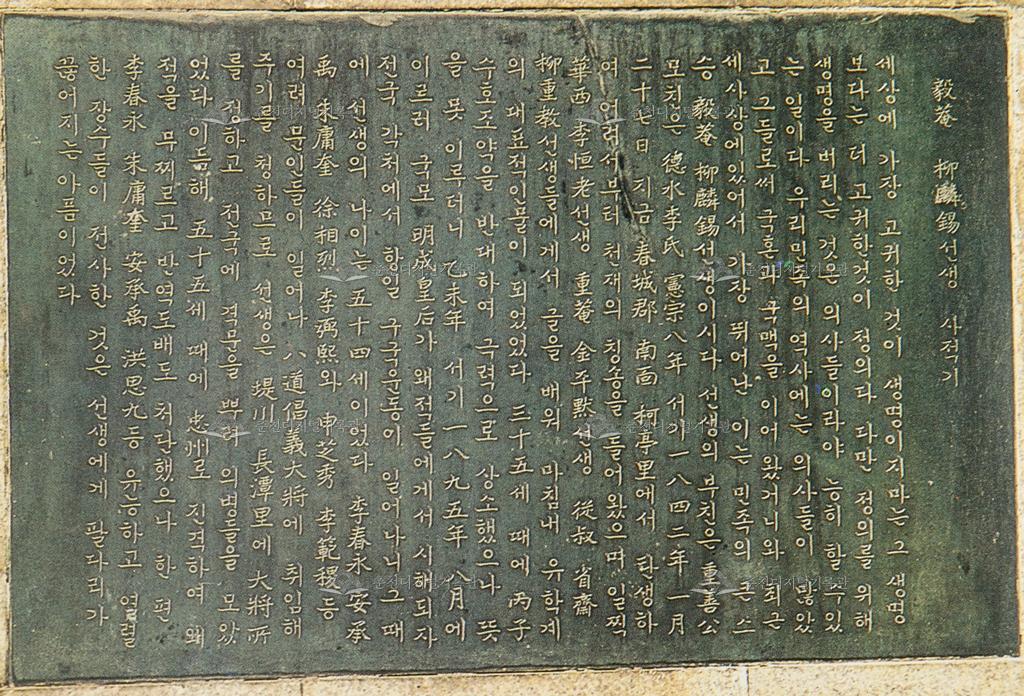 毅菴 柳麟錫선생 사적기
세상에 가장 고귀한 것이 생명이지마는 그 생명
보다는 더 고귀한것이 정의다 다만 정의를 위해
생명을 버리는 것은 의사들이라야 능히 할수있
는 일이다 우리민족의 역사에는 의사들이 많았
고 그들로써 국혼과 국맥을 이어왔거니와 최근
세사상에있어서 가장 뛰어난 이는 민족의 큰 스
승 毅菴 柳麟錫선생이시다 선생의 부친은 重善公
모친은 德水李氏 憲宗八年 서기一八四二年 一月
二十七日 지금 春城郡 南面 柯亭里에서 탄생하
여 어려서부터 천재의 칭송을 들어왔으며 일찍
華西 李恒老선생 重菴 金平默선생 從叔 省齋
柳重教선생들에게서 글을 배워 마침내 유학계
의 대표적인물이 되었었다 三十五세 때에 丙子
수호조약을 반대하여 극력으로 상소했으나 뜻
을 못 이루더니 乙未年 서기 一八九五年 八月에
이르러 국모 明成皇后가 왜적들에게서 시해되자
전국 각처에서 항일 구국운동이 일어나니 그 때
에 선생의 나이는 五十四세이었다 李春永 安承
禹 朱庸奎 徐相烈 李弼熙와 申芝秀 李範稷 등
여러 문인들이 일어나 八道倡義大將에 취임해
주기를 청하므로 선생은 堤川 長潭里에 大將所
를 정하고 전국에 격문을 뿌려 의병들을 모았
었다 이듬해 五十五세 때에 忠州로 진격하여 왜
적을 무찌르고 반역도배도 처단했으나 한 편
李春永 朱庸奎 安承禹 洪思九등 유능하고 열렬
한 장수들이 전사한 것은 선생에게 팔다리가
끊어지는 아픔이었다
춘천디지털기록관